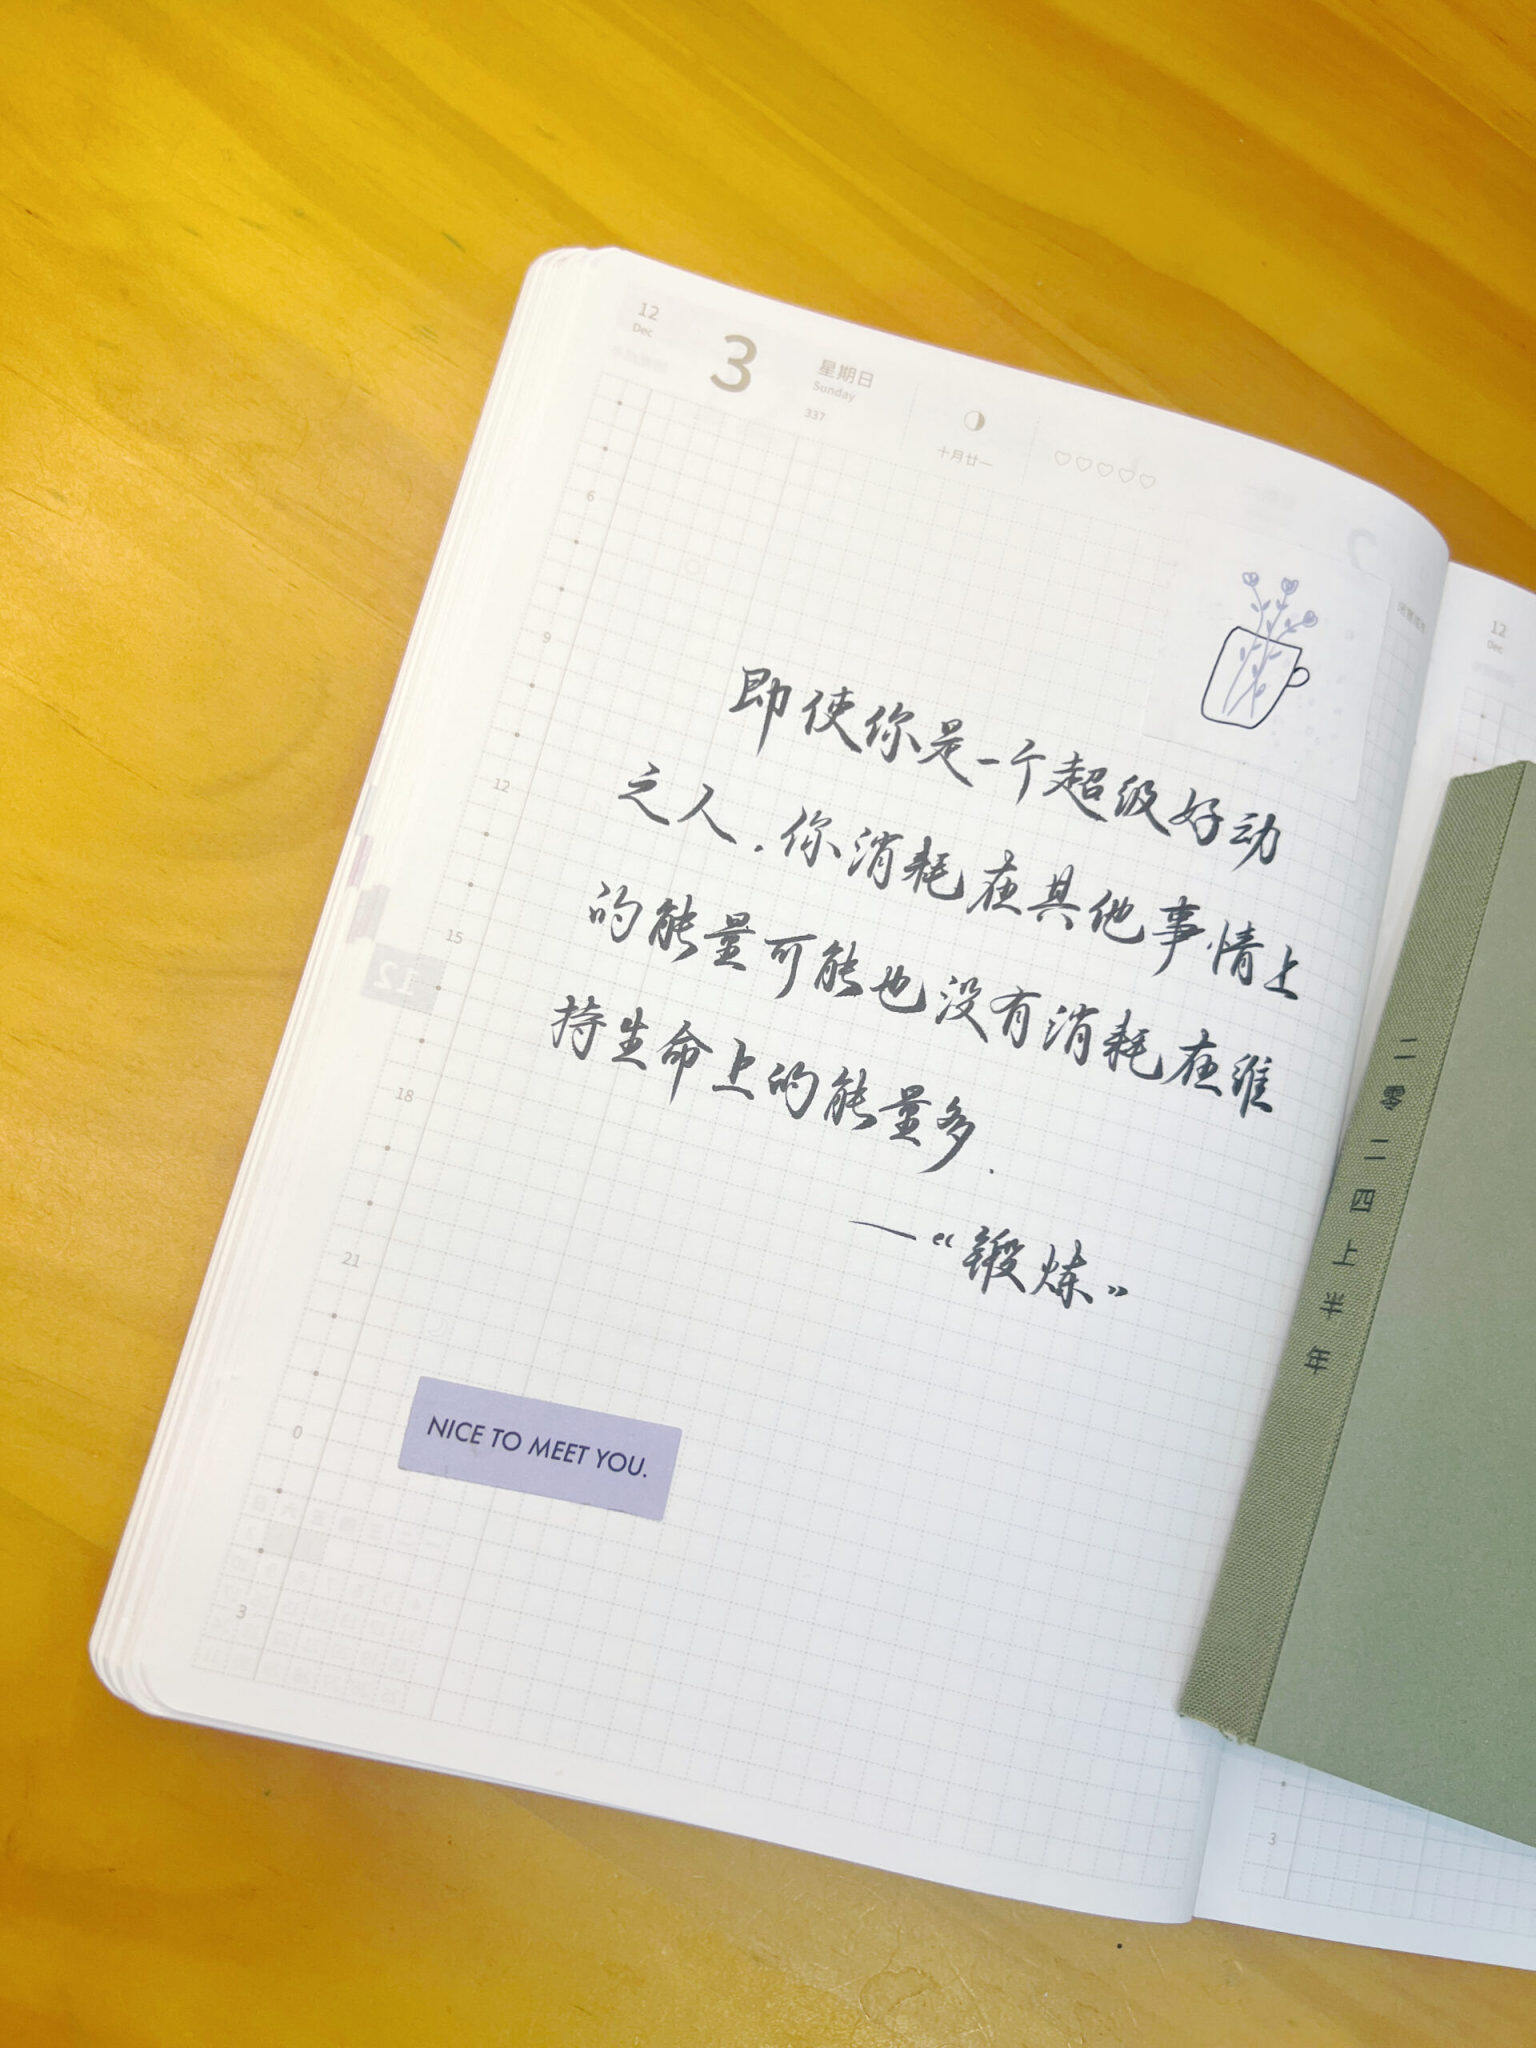 12
Dec
3
星期日
Sunday
337
十月廿一
6
9
12
15
18
21
0
3
即使你是一个超级好动
之人.你消耗在其他事情上
的能量可能也没有消耗在维
持生命上的能量多.
—“锻炼”
NICE TO MEET YOU.
12
Dec
二零二四上半年
3